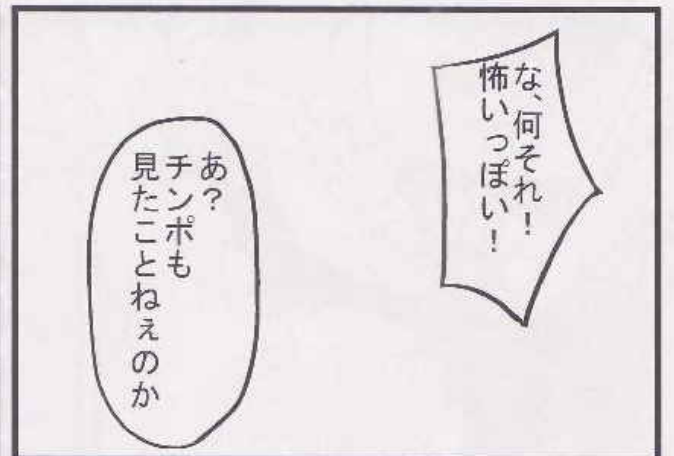 な、何それ！
怖いっぽい！
あ？
チンポも
見たことねぇのか